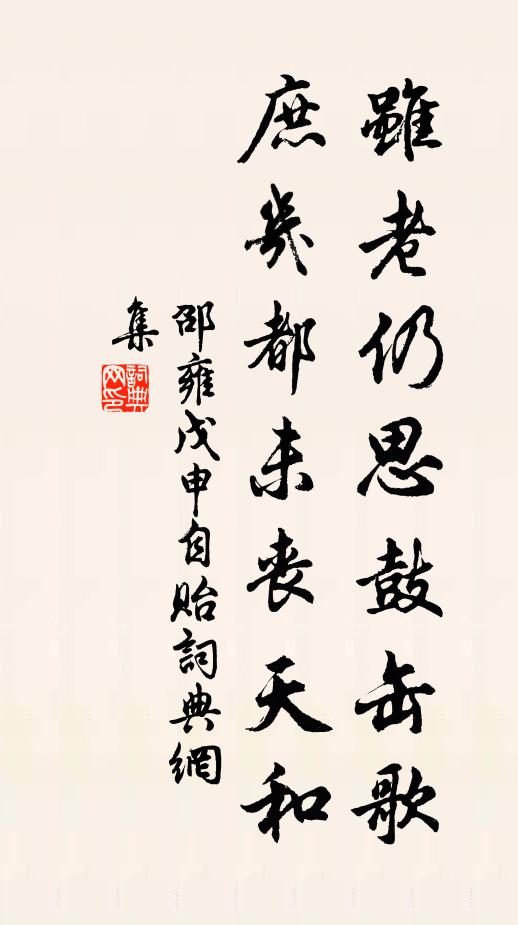 雖老仍思鼓缶歌
庶幾都未喪天和
邵雍戊申自貽詞典網
集
詞典
网印